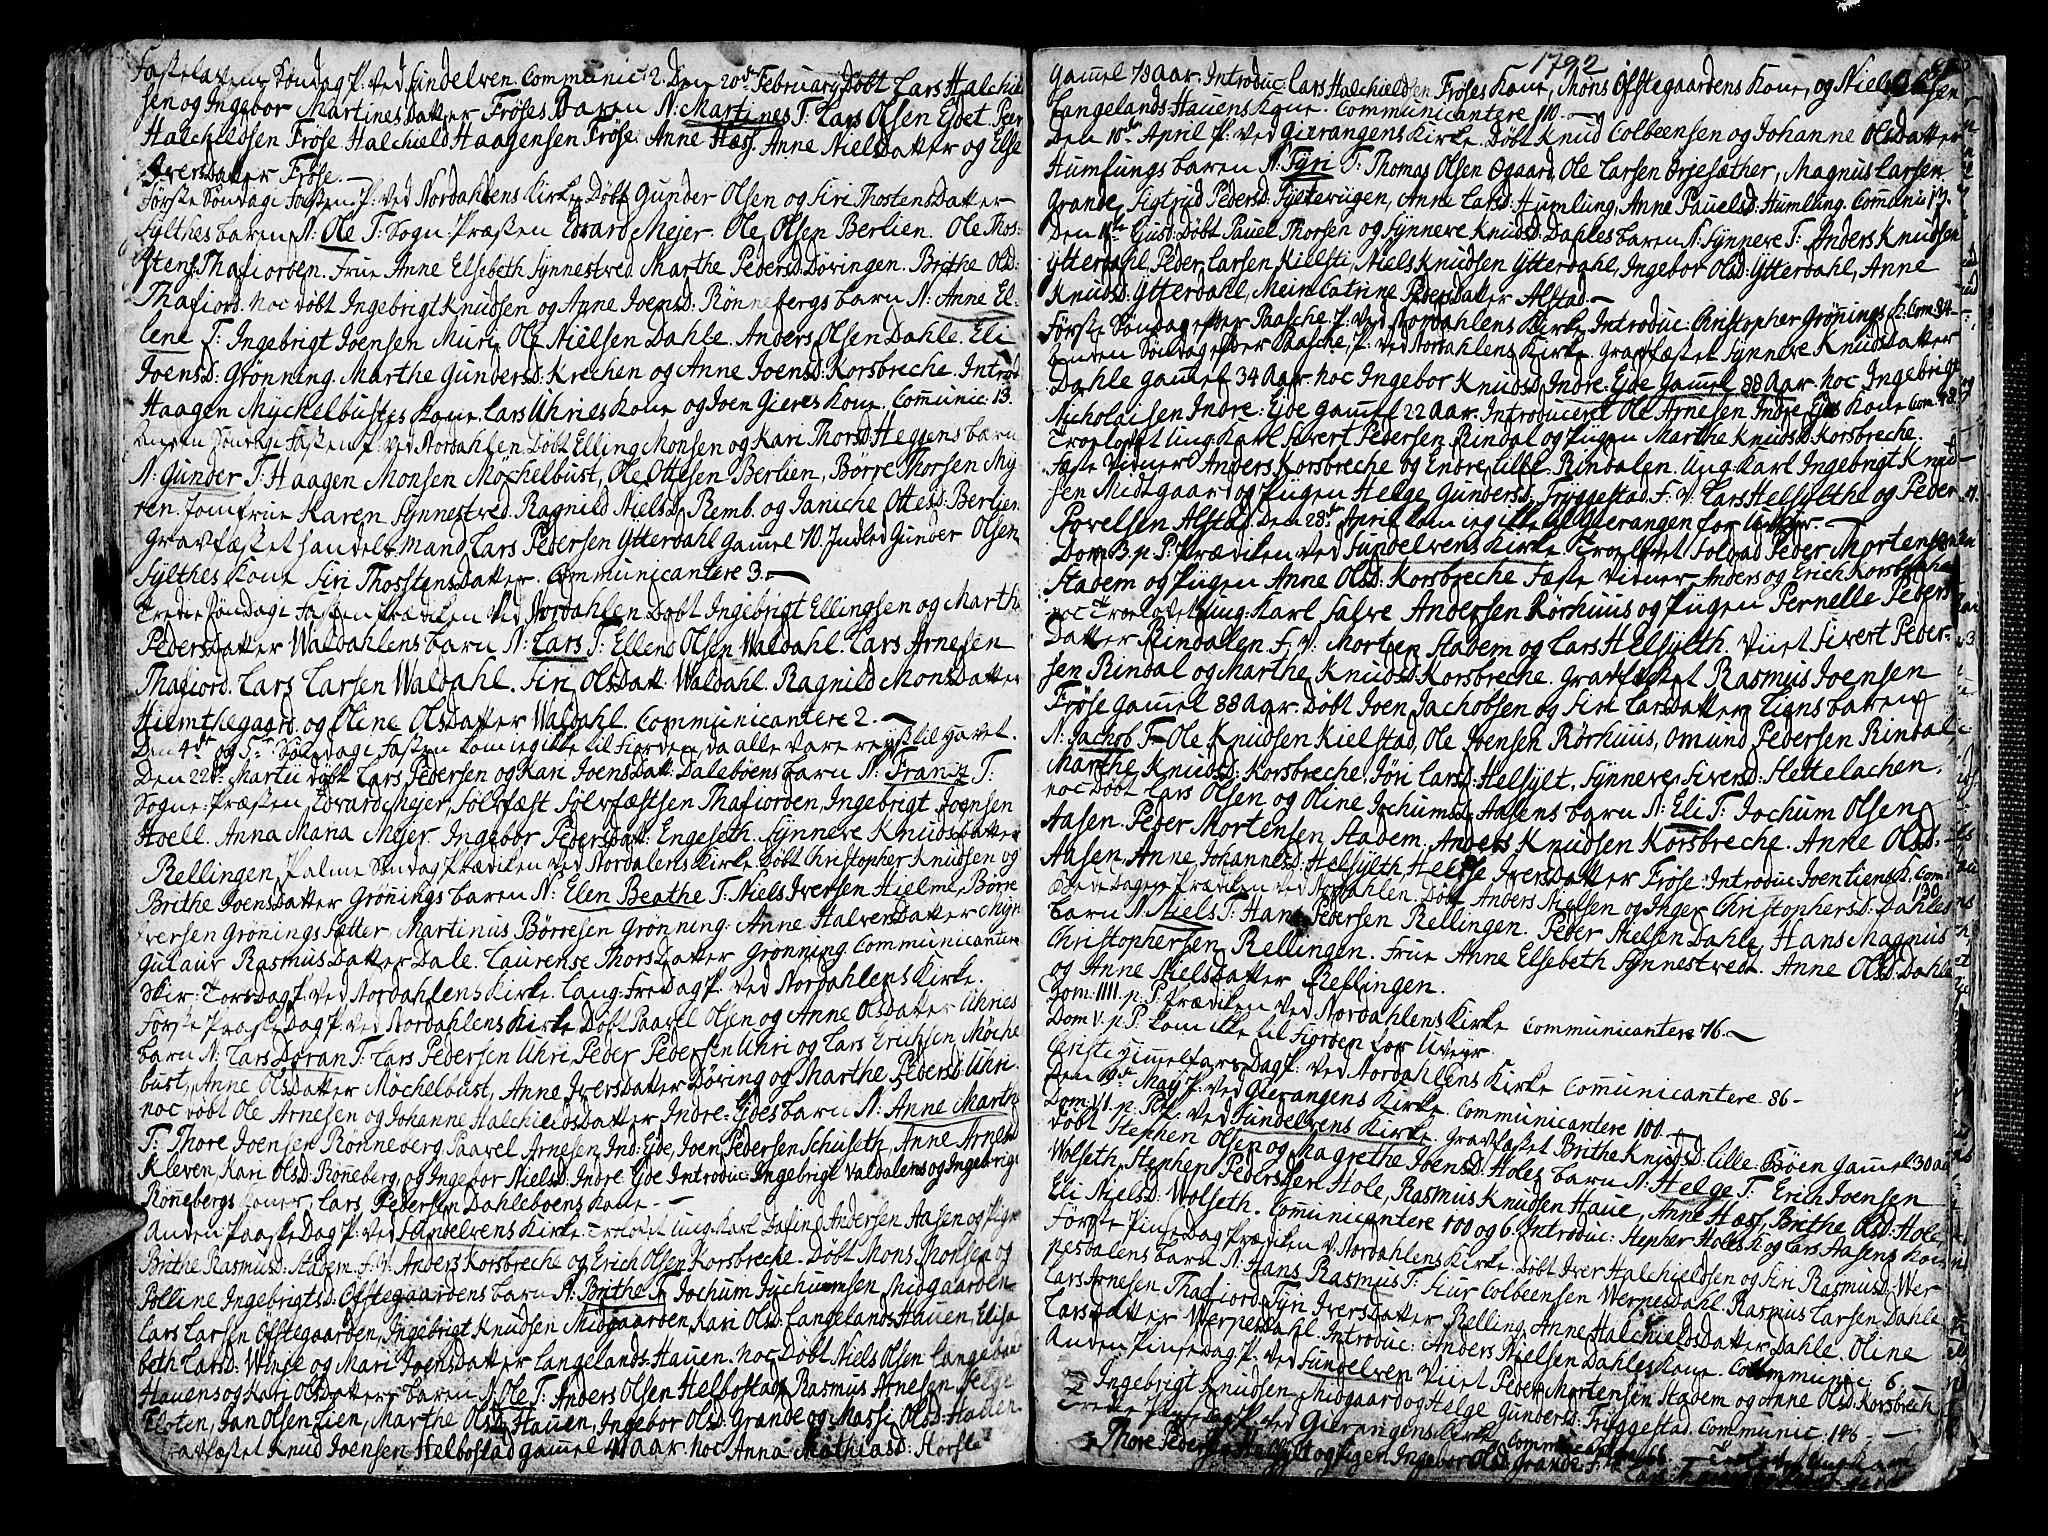 Fastelavens Søndag P. ved Sundelven Communic: 2. Den 20de February Døbt Lars Halchield
sen og Ingebor MartinesDatter Frøses Baren N: Martines T: Lars Olsen Ejdet. Peer
Halchieldsen Frøse Halchield Haagensen Frøse. Anne Hæss. Anne NielsDatter og Else
IversDatter Frøse.
Første Søndag i Fasten P: ved Nordahlens Kirke Døbt Gunder Olsen og Siri ThostensDatter
Sylthes baren N: Ole T: Sogn Præsten Edvard Mejer. Ole Olsen Berlien. Ole Thos-
stens. Thafiorden. Frue Anne Elsebeth Synnestved Marthe Pedersd: Døvingen. Brithe Olsd:
Thafiord. noc døbt Ingebrigt Knudsen og Anne Joensd: Rønnebergs barn N: Anne El-
lene T: Ingebrigt Joensen Muri Ole Nielsen Dahle. Anders Olsen Dahle. Eli
Joensd: Grønning. Marthe Gundersd: Krechen og Anne Joensd: Korsbreche. Introd:
Haagen Myckelbustes Kone Lars Uhries Kone og Joen Gieres Kone. Communic: 13.
Anden Søndag i Fasten P. ved Nordahlen Døbt Elling Monsen og Kari Thorsd: Heggens barn
N: Gunder T: Haagen Monsen Mochelbust, Ole Ottesen Berlien, Børre Thorsen My-
ren. Jomfrue Karen Synnestved. Ragnild Nielsd: Remb. og Janiche Ottesd: Berlien
Gravfæstet handels mand Lars Pedersen Ytterdahl gamel 70. Indled Gunder Olsen
Sylthes Kone Siri ThosstensDatter. Communicantere 3.
Tredie Søndag i Fasten Prædiken ved Nordahlen Døbt Ingebrigt Ellingsen og Marthe
PedersDatter Waldahlens barn N: Lars T: Ellend Olsen Waldahl. Lars Arnesen
Thafiord. Lars Larsen Waldahl. Siri OlsDatt: Waldahl. Ragnild MonsDatter
Hiemthegaard. og Oline OlsDatter Waldahl. Communicantere 2.
Den 4de og 5te Søndag i Fasten kom ieg ikke til Fiorden da alle vare reyst til havet.
Den 22de Martii døbt Lars Pedersen og Kari JoensDatt: Dalebøens barn N: Frantz T:
Sogne Præsten Edvard Mejer, Sølvfæst Sølvfæstsen Thafiorden, Ingebrigt Joensen
Hoell. Anna Maria Mejer Ingebor PedersDatt: Engeseth. Synnere KnudsDatter
Rellingen. Palme Søndag Prædiken ved Nordalens Kirke Døbt Christopher Knudsen og
Brithe JoensDatter Grønings baren N: Elen Beathe T: Niels Iversen Hielme, Børre
Iversen Grønings Sætter Martinus Børresen Grønning. Anne HalversDatter
Gulaur RasmusDatter Dale. Laurense ThorsDatter Grønning. Communicantere
Skier-Torsdag P. ved Nordahlens Kirke. Lang-Fredag P. ved Nordahlens Kirke.
Første Paaske Dag P. ved Nordahlens Kirke Døbt Paavel Olsen og Anne OlsDatter Uhries
barn N: Lars Doran T: Lars Pedersen Uhri, Peder Pedersen Uhri og Lars Erichsen Møche
bust, Anne OlsDatter Møchelbust, Anne IversDatter Døving og Marthe Pedersd: Uhri.
noc døbt Ole Arnesen og Johanne HalchieldsDatter Indre-Ejdes barn N: Anne Martha
T: Thore Joensen Rønneberg Paavel Arnesen Ind: Ejde, Joen Pedersen Schuseth, Anne Arnesd
Kleven, Kari Olsd: Røneberg, og Ingebor Nielsd: Indre Ejde Introduc: Ingebrigt Valdalens og Ingebrigt
Rønebergs Koner, Lars Pedersen Dahlebøens Kone.
Anden Paaske Dag P. ved Sundelvens Kirke Trolovet ung: Karl Andersen Aasen og Pige
Brithe Rasmusd: Stadem. F. V. Anders Korsbreche og Erich Olsen Korsbreche. Døbt Mons Monsen og
Polline Ingebrigtsd: Ofstegaardens barn N: Brithe T: Jochum Juchumsen Midgaarden
Lars Larsen Ofstegaarden, Ingebrigt Knudsen Midgaarden, Kari Olsd: Langelands Hauen, Elisa
beth Larsd: Winje og Mari JoensDatter Langelands Hauen. noc Døbt Niels Olsen Langelands
Hauens og Kari OlsDatters baren N: Ole T: Anders Olsen Helbostad, Rasmus Arnesen Helge
Floten, Jan Olsen Lien, Marthe Olsd: Hauen, Ingebor Olsd: Grande og Massi Olsd: Hauen.
Gravfæstet Knud Joensen Helbostad gamel 41 Aar. noc Anna Mathiasd:
1792
Gamel 78 Aar. Introduc: Lars Halchieldsen Frøses Kone, Mons Ofstegaardens Kone, og Niels Olsen
Langelands Hauens Kone. Communicantere 110.
Den 10de April P. ved Gierangens Kirke. Døbt Knud Colbeensen og Johanne OlsDatter
Humlungs baren N: Syri T: Thomas Olsen Ogaard, Ole Larsen Ørjesæther, Magnus Larsen
Grande, Sigtrud Pedersd: Gylterügen, Anne Larsd: Humlung, Anne Pauelsd: Humlung. Communic: 13.
Den 11te Ejusd: Døbt Pauel Thorsen og Synnere Knudsd: Dahles baren N: Synnere T: Anders Knudsen
Ytterdahl, Peder Larsen Kielsti, Niels Knudsen Ytterdahl, Ingebor Olsd: Ytterdahl, Anne
Knudsd: Ytterdahl, Mein Catrine PedersDatter Alstad.
Første Søndag efter Paasche P. ved Nordahlens Kirke Introduc: Christopher Grønings K. Com: 84.
Anden Søndag efter Paasche, P. ved Nordahlens Kirke. Gravfæstet Synnere KnudsDatter
Dahle gamel 34 Aar. noc Ingebor Knudsd: Indre Ejde gamel 88 Aar. noc Ingebrigt
Nicholaisen Indre-Ejde gamel 22 Aar. Introduceret Ole Arnesen Indre Ejdes Kone Com: 48.
Troelovet ung Karl Sivert Pedersen Rindal og Pigen Marthe Knudsd: Korsbreche.
Fæste Vidner Anders Korsbreche og Endre Lille Rindalen. Ung Karl Ingebrigt Knud-
sen Midtgaard og Pigen Helge Gundersd: Tryggestad. F. V. Lars Helsylthe og Peder
Povelsen Alstad. Den 28de April kom ieg ikke til Gierangen for Uveyr.
Dom: 3. p: P: Prædiken ved Sundelvens Kirke Troelovet Soldad Peder Mortensen
Stadem og Pigen Anne Olsd: Korsbreche Fæste Vidner Anders og Erich Korsbreche
noc Troelovet ung Karl Salve Andersen Rørhuus og Pigen Pernelle Peders
Datter Rindalen F. V. Morten Stadem og Lars Helsylth. Viiet Sivert Peder-
sen Rindal og Marthe Knudsd: Korsbreche. Gravfæstet Rasmus Joensen
Frøse gamel 88 Aar. Døbt Joen Jachobsen og Siri LarsDatter Liens baren
N: Jachob T: Ole Knudsen Kielstad, Ole Joensen Rørhuus, Omund Pedersen Rindal,
Marthe Knudsd: Korsbreche, Jøri Larsd: Helsylt, Synnere Siversd: Slettelachen.
noc Døbt Lars Olsen og Oline Jochumsd: Aasens barn N: Eli T: Jochum Olsen
Aasen. Peder Mortensen Stadem. Anders Knudsen Korsbreche. Anne Olsd.
Aasen, Anne Johannesd: Helsylth, Helge IversDatter Frøse. Introduc: Joen Liens K. Com: 130
Bede Dagen Prædiken ved Nordahlen. Døbt Anders Nielsen og Inger Christophersd: Dahles
barn N: Niels T: Hans Pedersen Rellingen. Peder Nielsen Dahle, Hans Magnus
Christophersen Rellingen. Frue Anne Elsebeth Synnestved. Anne Olsd: Dahle
og Anne NielsDatter Rellingen.
Dom: IIII. p: P. Prædiken ved Nordahlens Kirke Communicantere 76.
Dom V. p: P: kom ikke til Fiorden for Uveyr.
Christi Himmelfarts Dag P: ved Nordahlens Kirke Communicantere 86.
Den 19de May P. ved Gierangens Kirke. Communicantere 100.
Dom: VI. p: P. ved Sundelvens Kirke. Gravfæstet Brithe Knudsd: Lille-Bøen gamel 30 aar
døbt Stephen Olsen og Magrethe Joensd: Holes barn N: Helge T: Erich Joensen
Wolseth, Stephen Pedersen Hole, Rasmus Knudsen Haue, Anne Hæss, Brithe Olsd: Hole
Eli Nielsd: Wolseth. Communicantere 100 og 6. Introduc: Stepher Holes K. og Lars Aasens Kone
Første Pinsedag Prædiken v. Nordahlens Kirke. Døbt Iver Halchieldsen og Siri Rasmusd: Wer
pesdalens barn N: Hans Rasmus T: Siur Colbeensen Werpesdahl. Rasmus Larsen Dahle
Lars Arnesen Thafiord, Syri IversDatter Relling, Anne HalchieldsDatter Dahle. Oline
LarsDatter Werpesdahl. Introduc: Anders Nielsen Dahles Kone. Communic: 6.
Anden PinseDag P. ved Sundelven Viiet Peder Mortensen Stadem og Anne Olsd: Korsbrech
2 Ingebrigt Knudsen Midgaard og Helge Gundersd: Tryggestad. Communic: 146.
Tredie Pinsedag P. ved Gierangens Kirke Communicantere 66. Trolovet Ung Karl
Thore Pedersen og Pigen Ingebor Olsd: Grande F: